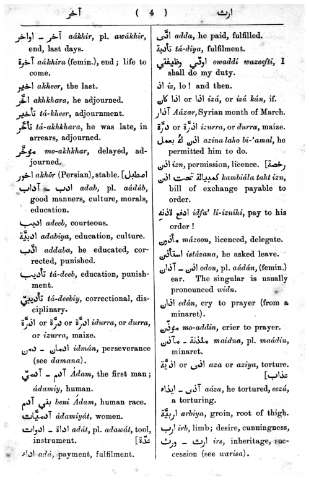 آخر ( 4 ) ارث
آخر - اواخر aákhir, pl. awákhir,
end, last days.
آخرة aákhira (femin.), end; life to
come.
اخير akheer, the last.
اخّر akhkhara, he adjourned.
تأخير tá-kheer, adjournment.
تأخّر tá-akhkhara, he was late, in
arrears, adjourned.
مؤخّر mo-akhkhar, delayed, ad-
journed.
آخور akhór (Persian), stable. [اصطبل
ادب - آداب adab, pl. aádáb,
good manners, culture, morals,
education.
اديب adeeb, courteous.
ادبيّة adabiya, education, culture.
ادّب addaba, he educated, cor-
rected, punished.
تأديب tá-deeb, education, punish-
ment.
تأديبي tá-deebiy, correctional, dis-
ciplinary.
ادرة or ذرة or اذرة idurra, or durra,
or izurra, maize.
ادمان - دمن idmán, perseverance
(see damana).
آدم Ádam, the first man;
ádamiy, human.
بني آدم beni Ádam, human race.
آدميّات ádamiyát, women.
اداة - ادوات adát, pl. adawát, tool,
instrument. [عدّة
اداء adá, payment, fulfilment.
ادّى adda, he paid, fulfilled.
تأدية tá-diya, fulfilment.
اودّي وظيفتي owaddi wazeefti, I
shall do my duty.
اذ iz, lo! and then.
اذا or اذا كان izá, or izá kán, if.
آذار Aázar, Syrian month of March.
اذرة or ذرة izurra, or durra, maize.
اذن له بعمل azina laho bi-'amal, he
permitted him to do.
اذن izn, permission, licence. [رخصة
كمبيالة تحت اذن kambiála taht izn,
bill of exchange payable to
order.
ادفع لاذنه idfa' li-iznihi, pay to his
order!
مأذون mázoon, licenced, delegate.
استأذن istázana, he asked leave.
اذن - آذان odon, pl. aádán, (femin.)
ear. The singular is usually
pronounced widn.
اذان edán, cry to prayer (from a
minaret).
مؤذّن mo-addin, crier to prayer.
مأذنة - مآذن maidna, pl. maádin,
minaret.
اذى or اذيّة aza or aziya, torture.
[عذاب
آذى - ايذاء aáza, he tortured, eezá,
a torturing.
اربيّة arbiya, groin, root of thigh.
ارب irb, limb; desire, cunningness,
ارث - ورث irs, inheritage, suc-
cession (see warisa).